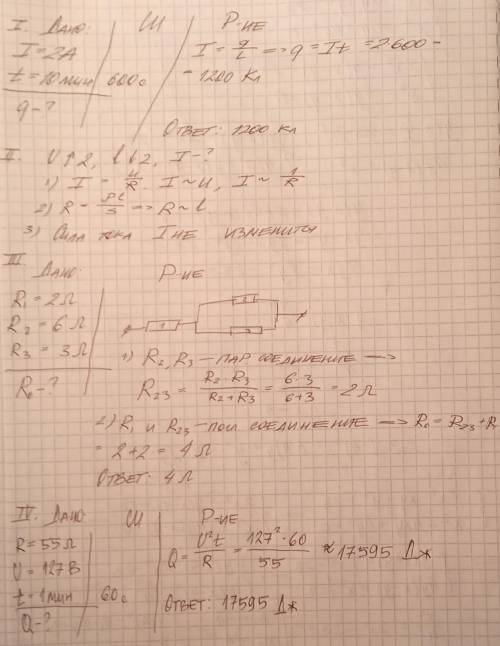 I. Дано: СИ Р-ие
I = 2А
t = 10мин 600 с
q - ?
I = q/t => q = It = 2·600 =
= 1200 Кл
Ответ: 1200 Кл
II. U↑2, l↓2, I-?
1) I = U/R. I ~ U, I ~ 1/R
2) R = ρl/S => R ~ l
3) Сила тока I не изменится
III Дано: Р-ие
R1 = 2Ω
R2 = 6Ω
R3 = 3Ω
R0 - ?
1 2 3
1) R2, R3 — пар соединение —>
R23 = R2·R3/R2+R3 = 6·3/6+3 = 2Ω
2) R1 и R23 — посл соединение —> R0 = R23 + R1
= 2+2 = 4Ω
Ответ: 4Ω
IV. Дано: СИ Р-ие
R = 55Ω
U = 127В
t = 1мин 60 с
Q - ?
Q = U²t/R = 127²·60/55 ≈ 17595 Дж
Ответ: 17595 Дж